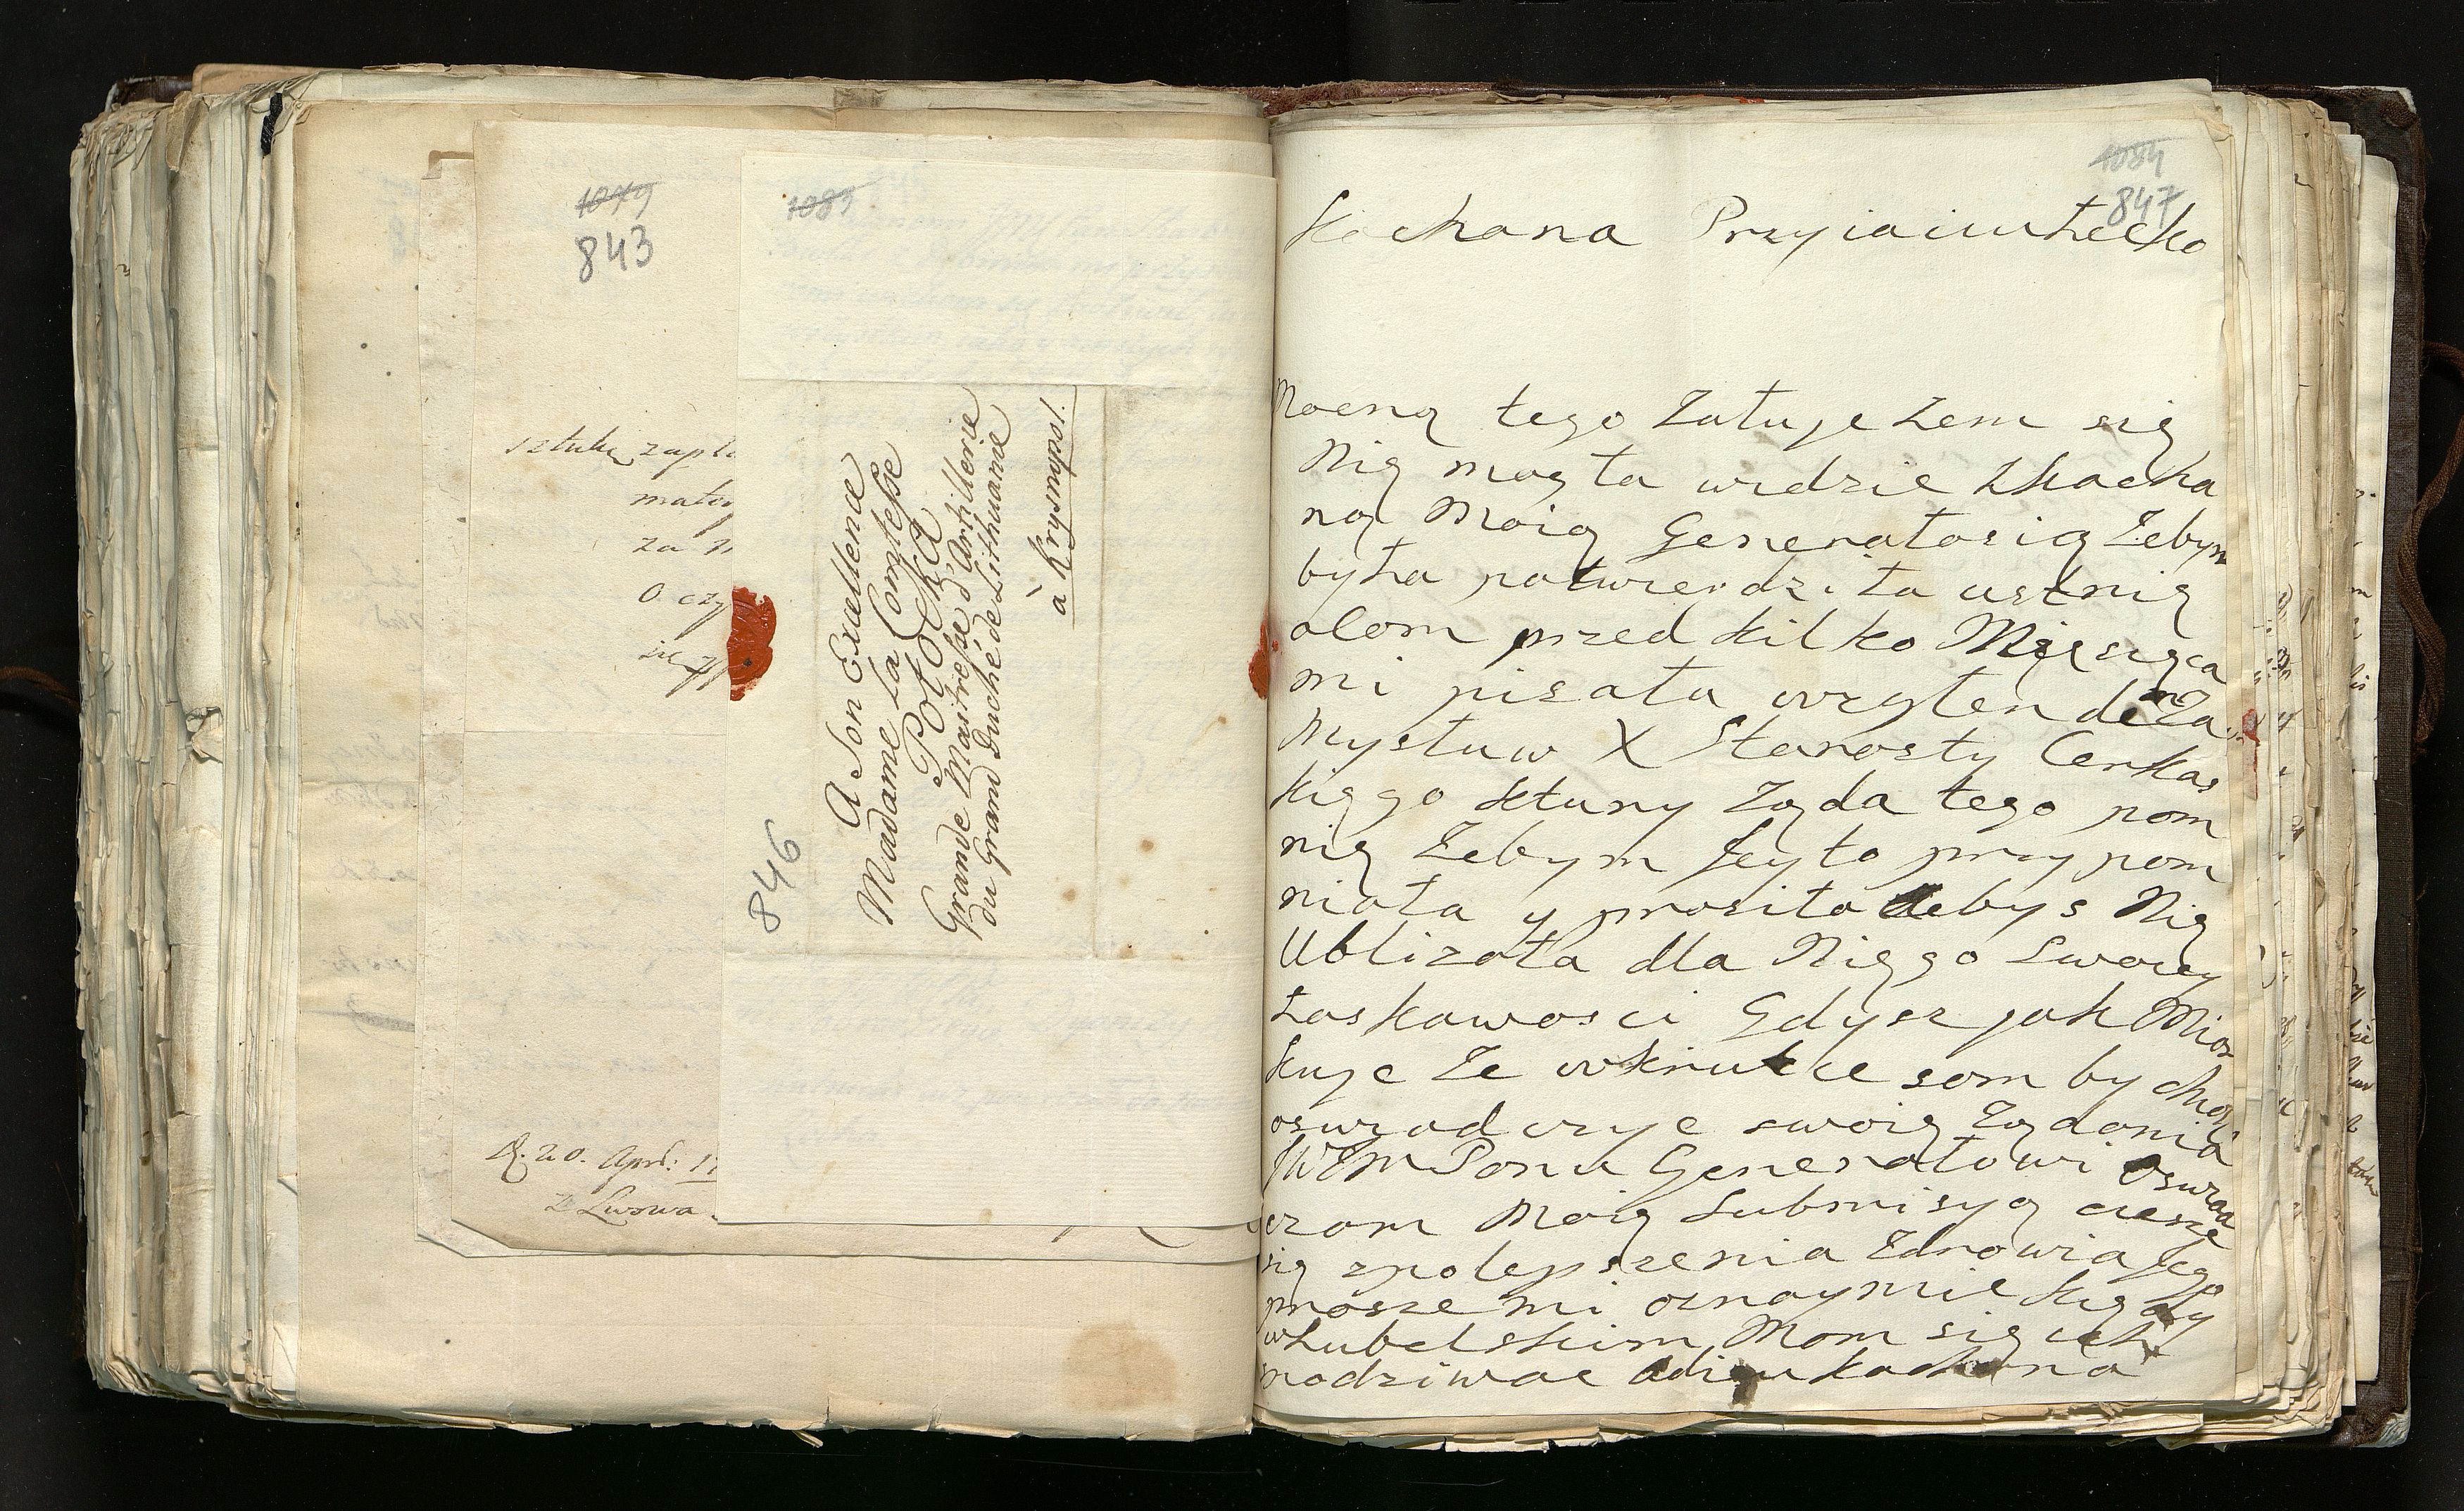 1079
843
sztukę zapła
mator
za
o czy
D. 20. Aprl: 17
Ze Lwowa
1083
A Son Excellence
Madame La Comtesse
POTOCKA
Grande Maitresse d'Artillerie
du Grand Duché de Lithuanie
à Krysnopol.
846
1084
847
Kochana Przyiaciułecko
Mocną tego Załuje Zem się
Nię mogła widzie Zkocha
ną Moią Generałosią Zebym
była potwierdziła ustnię
olom przed kilko Mięsięca
mi pisała wzglendem Za
Mysłuw X Starosty Cerkas
kięgo ktury Ząda tego pom
nię Zebym Jey to przypom
niała y prosiła Zebys Nię
Ublizała dla Nięgo Swoiey
Łaskawosci Gdysz jak Miar
kuje Ze wkrutce som by chciał
oswzadczyc swoię Ządania
JWIM Panu Generałowi oswza
czom Moię Submisyą ciesze
się zpolepszenia Zdrowia Jego
prosze mi oznaymie kiędy
wLubelskim Mom się ich
nodziwac adieu kochana